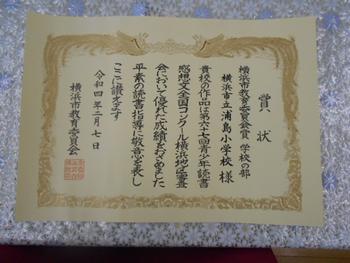 賞状
横浜市教育委員会賞 学校の部
横浜市立浦島小学校 様
貴校の作品は第六十七回青少年読書
感想文全国コンクール横浜地区審査
会において優れた成績をおさめました
平素の読書指導に敬意を表し
ここに讃えます
令和四年二月七日
横浜市教育委員会